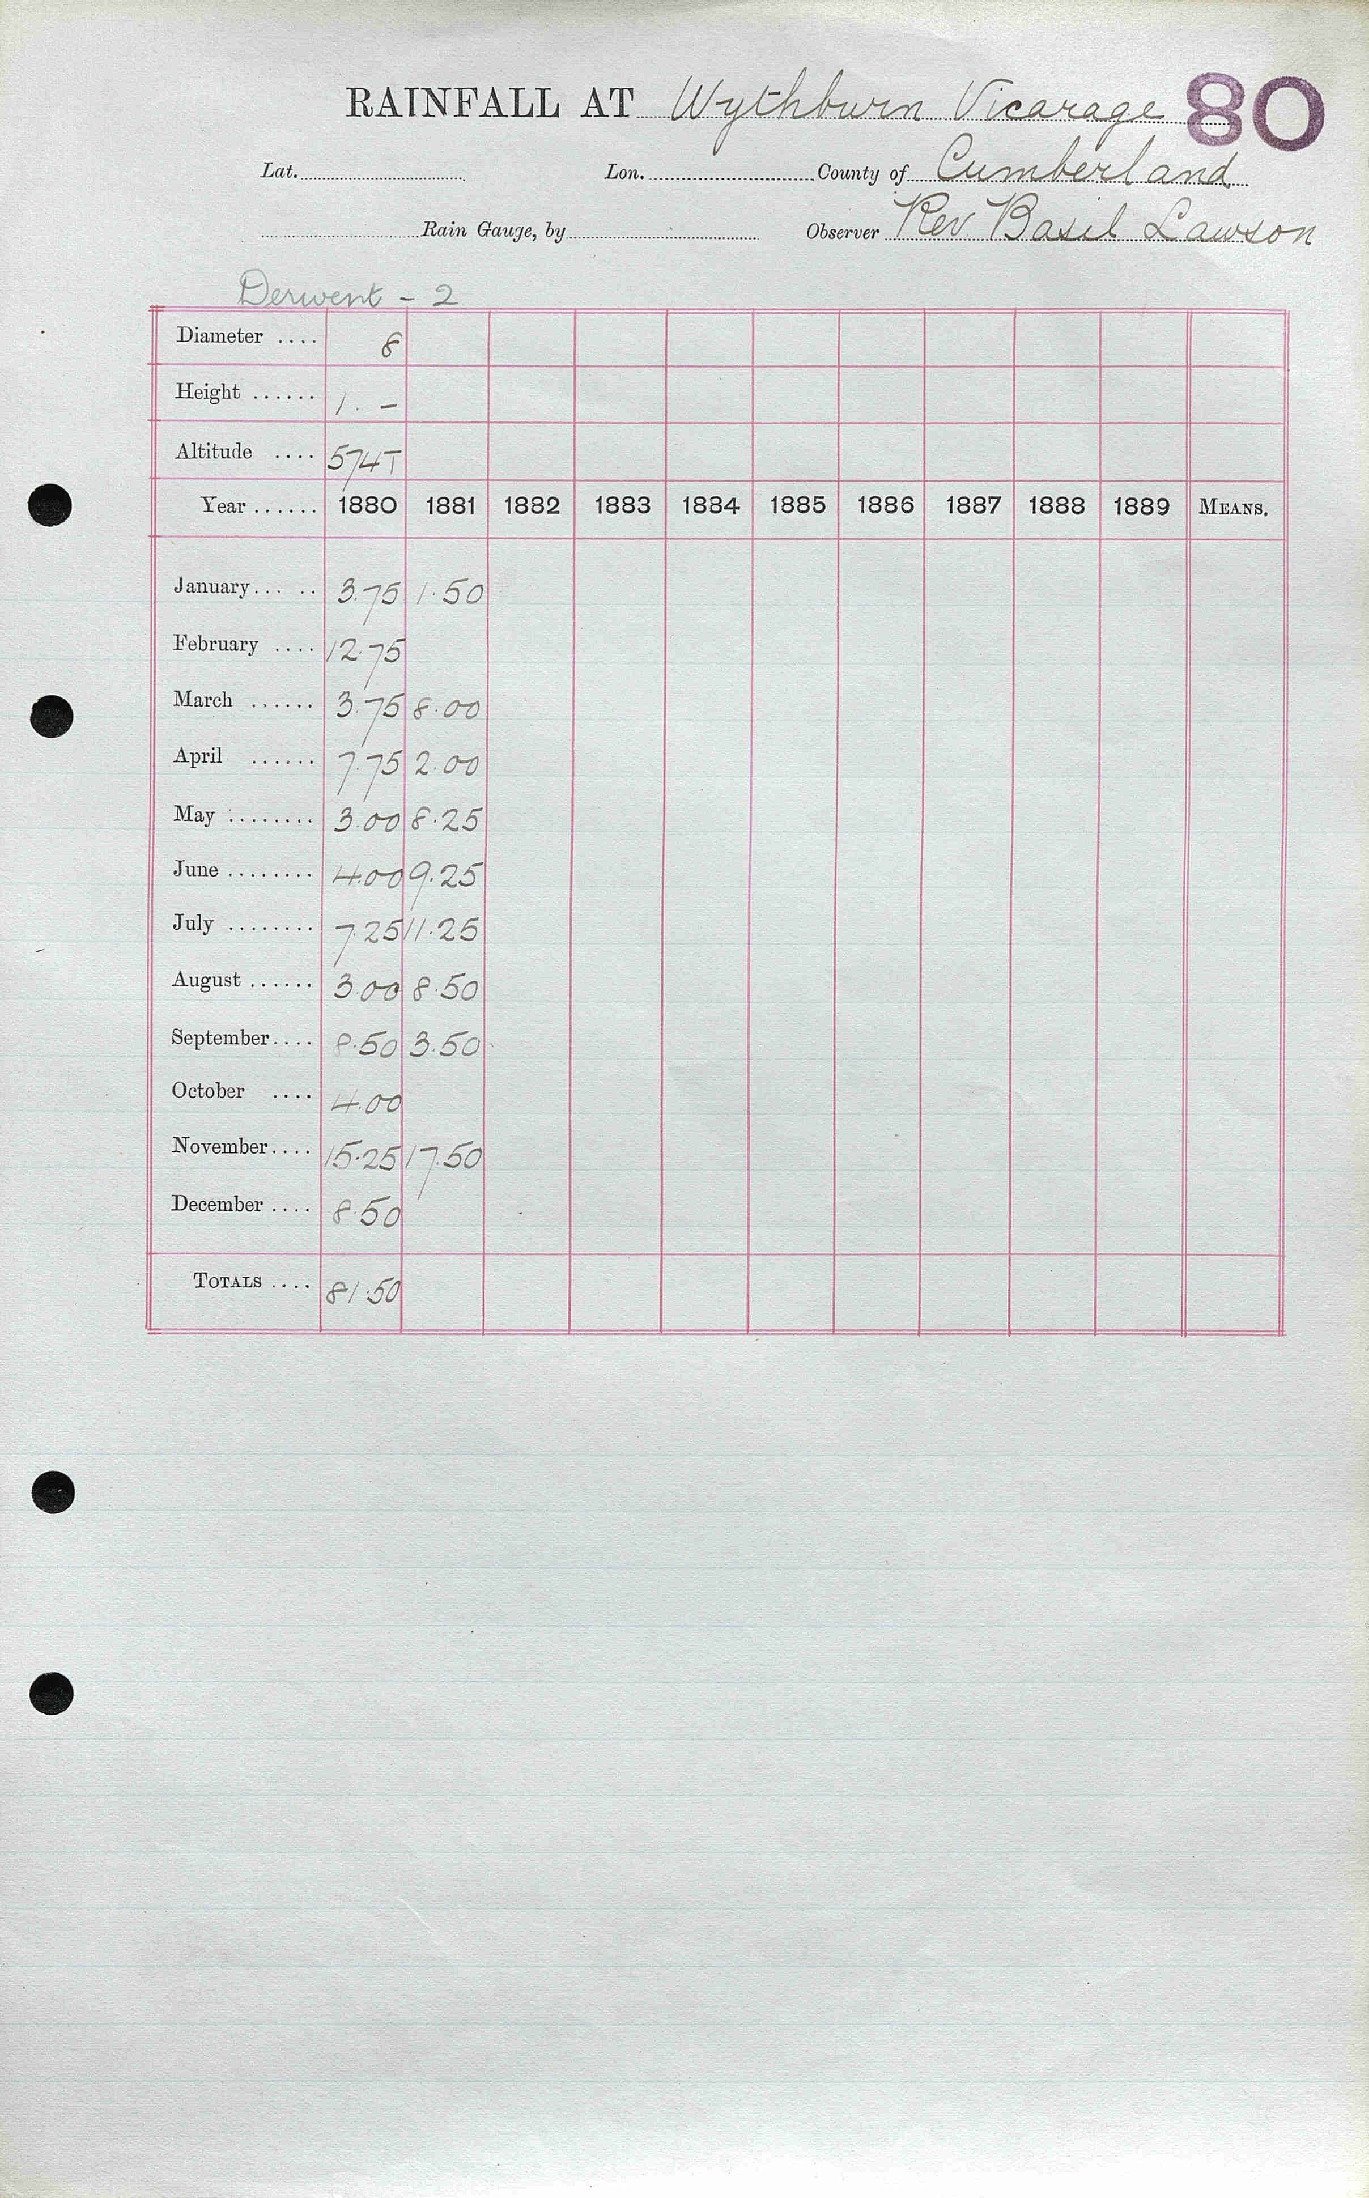 RAINFALL AT Wythburn Vicarage 80
Lat. Lon. County of Cumberland
Rain Gauge, by Observer Rev. Basil Lawson
Derwent - 2
Diameter .... 8
Height ...... 1. -
Altitude .... 574T
Year ...... 1880 1881 1882 1883 1884 1885 1886 1887 1888 1889 MEANS.
January... .. 3.75 1.50
February .... 12.75
March ...... 3.75 8.00
April ...... 7.75 2.00
May ........ 3.00 8.25
June ........ 4.00 9.25
July ........ 7.25 11.25
August ...... 3.00 8.50
September.... 8.50 3.50
October .... 4.00
November.... 15.25 17.50
December .... 8.50
TOTALS .... 81.50